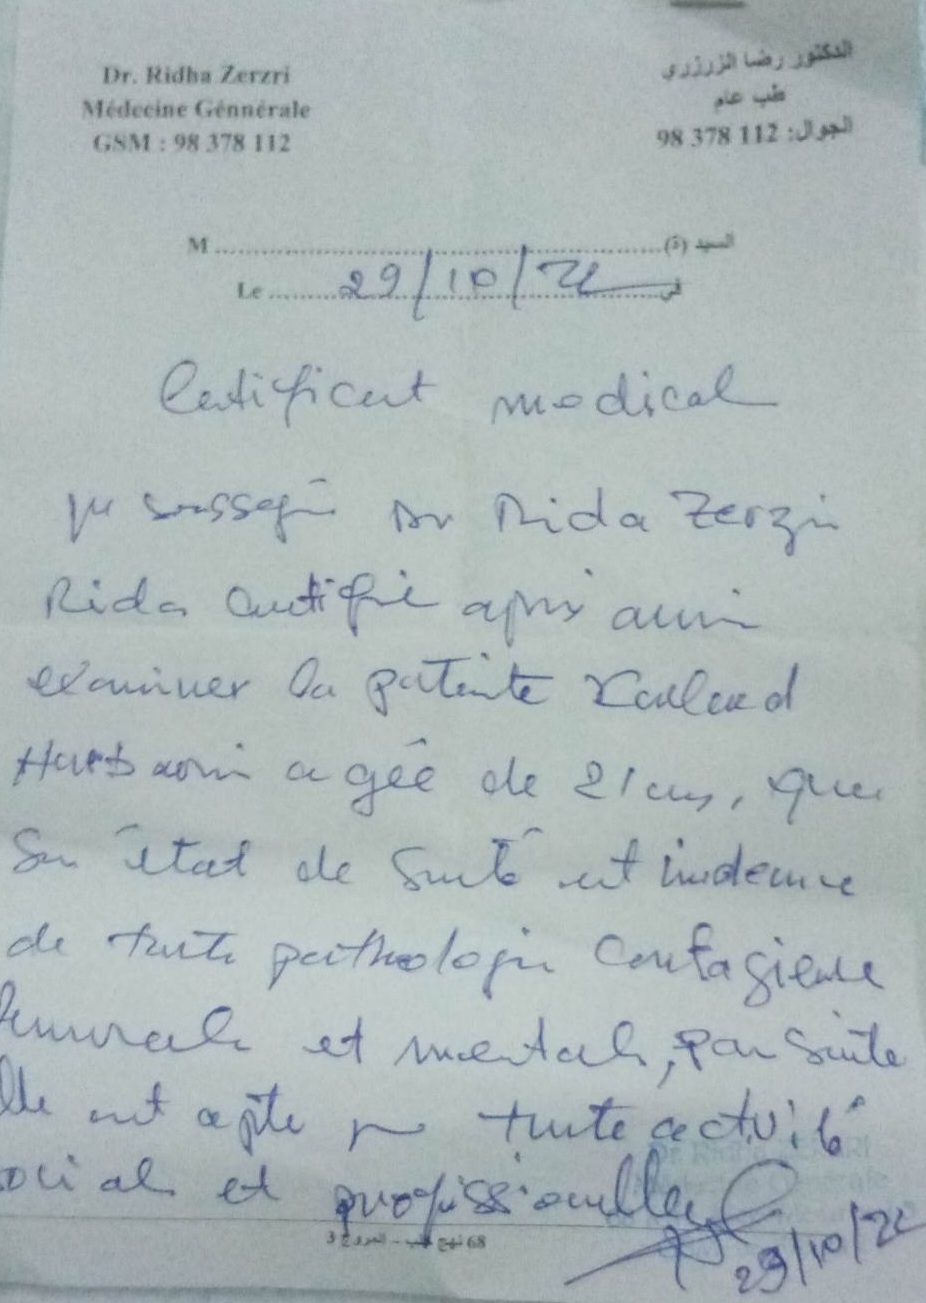 Dr. Ridha Zerzri
Médecine Génnérale
GSM : 98 378 112
الدكتور رضا الزرزري
طب عام
الجوال: 98 378 112
M ........................ السيد (ة)
Le ........ 29/10/22 ........ في
Certificat medical
je soussigné Dr Rida Zerzri
Rida certifie après avoir
examiner la patiente
agée de 21 ans, que
son état de santé est indemne
de toute pathologie contagieuse
et mentale, par suite
elle est apte pr toute activité
sociale et professionnelle
68 نهج - المروج 3
29/10/22